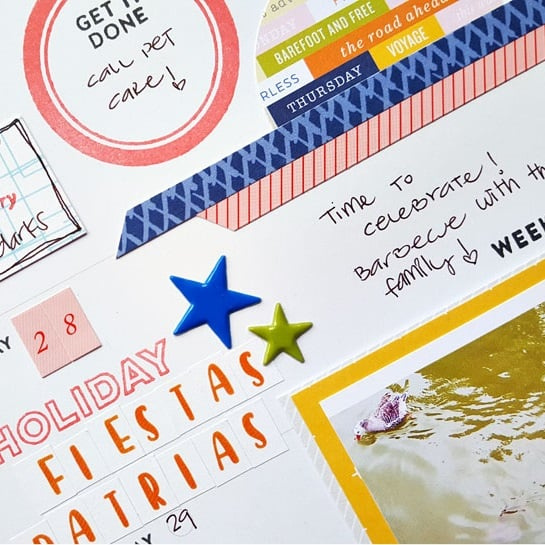 GET
DONE
call pet
care!
BAREFOOT AND FREE
the road ahead
VOYAGE
THURSDAY
Time to
celebrate!
Barbecue with
family!
28
HOLIDAY
FIESTAS
PATRIAS
29